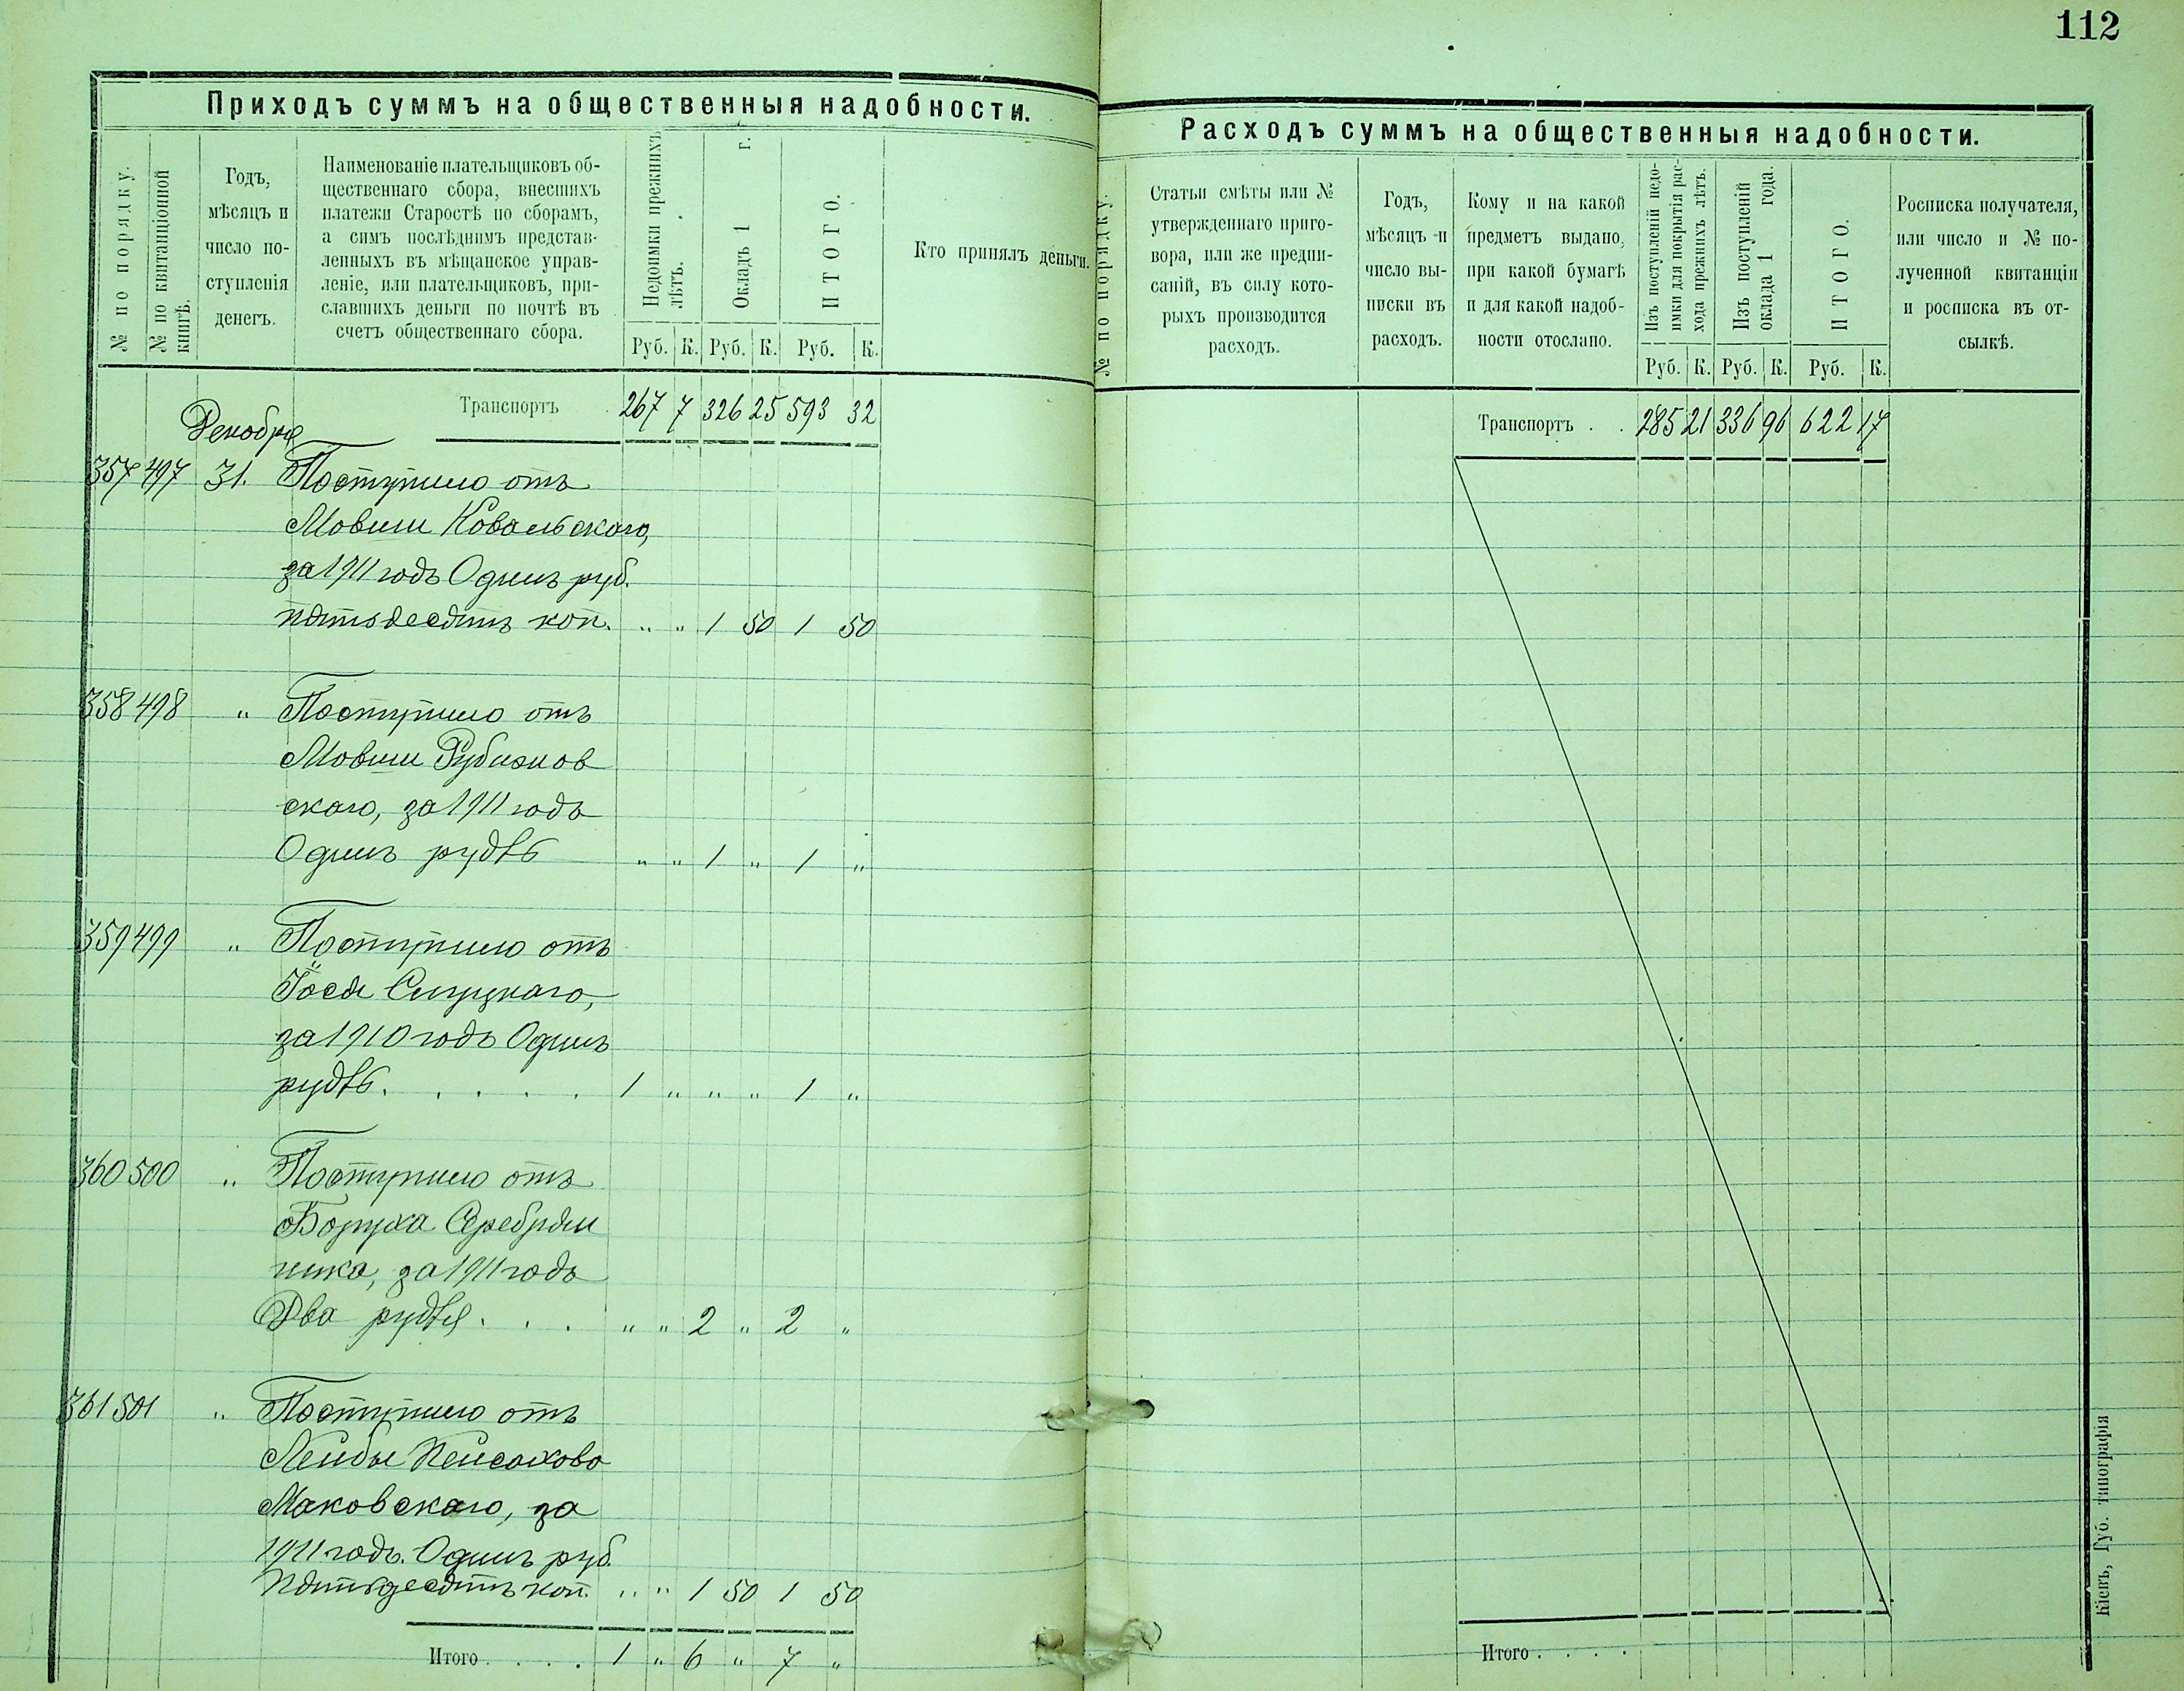 112
Приходъ суммъ на общественныя надобности.
№ по порядку.
№ по квитанціонной
книгѣ.
Годъ,
мѣсяцъ и
число по-
ступленія
денегъ.
Наименованіе плательщиковъ об-
щественнаго сбора, внесшихъ
платежи Старостѣ по сборамъ,
а симъ послѣднимъ представ-
ленныхъ въ мѣщанское управ-
леніе, или плательщиковъ, при-
славшихъ деньги по почтѣ въ
счетъ общественнаго сбора.
Недоимки прежнихъ
лѣтъ.
Окладъ 1 г.
ИТОГО.
Кто принялъ деньги.
Руб. К. Руб. К. Руб. К.
Транспортъ 267 7 326 25 593 32
Декабря
357 497 31. Поступило отъ
Мовши Ковальскаго,
за 1911 годъ Одинъ руб.
пятьдесятъ коп. „ „ 1 50 1 50
358 498 „ Поступило отъ
Мовши Рубижов
скаго, за 1911 годъ
Одинъ рубль „ „ 1 „ 1 „
359 499 „ Поступило отъ
Іося Слуцкаго,
за 1910 годъ Одинъ
рубль. . . . . 1 „ „ „ 1 „
360 500 „ Поступило отъ
Боруха Серебрян
ника, за 1911 годъ
Два рубля . . . „ „ 2 „ 2 „
361 501 „ Поступило отъ
Лейбы Пейсахова
Маковскаго, за
1911 годъ. Одинъ руб.
пятьдесятъ коп. „ „ 1 50 1 50
Итого . . . . 1 „ 6 „ 7 „
Расходъ суммъ на общественныя надобности.
№ по порядку.
Статьи смѣты или №
утвержденнаго приго-
вора, или же предпи-
саній, въ силу кото-
рыхъ производится
расходъ.
Годъ,
мѣсяцъ и
число вы-
писки въ
расходъ.
Кому и на какой
предметъ выдано,
при какой бумагѣ
и для какой надоб-
ности отослано.
Изъ поступленій недо-
имки для покрытія рас-
хода прежнихъ лѣтъ.
Изъ поступленій
оклада 1 года.
ИТОГО.
Росписка получателя,
или число и № по-
лученной квитанціи
и росписка въ от-
сылкѣ.
Руб. К. Руб. К. Руб. К.
Транспортъ . . 285 21 336 96 622 17
Итого . . . .
Кіевъ, Губ. типографія